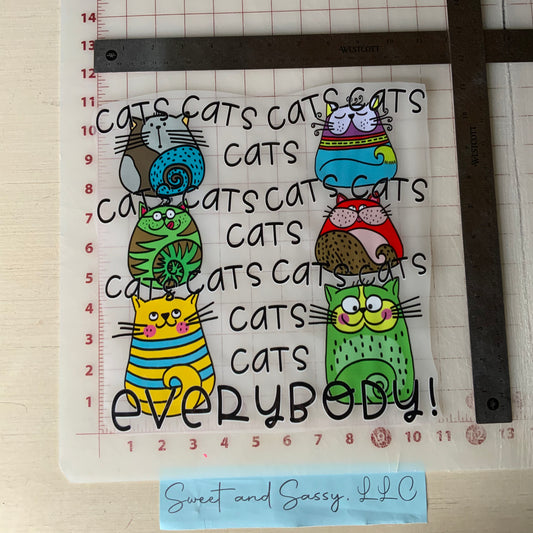 14
13
12
11
10
9
8
7
6
5
4
3
2
1
WESTCOTT
WESTCOTT
CATS CATS CATS CATS
CATS
CATS CATS CATS CATS
CATS
CATS CATS CATS CATS
CATS
CATS
EVERYBODY!
1 2 3 4 5 6 7 8 9 10 11 12 13
Sweet and Sassy, LLC